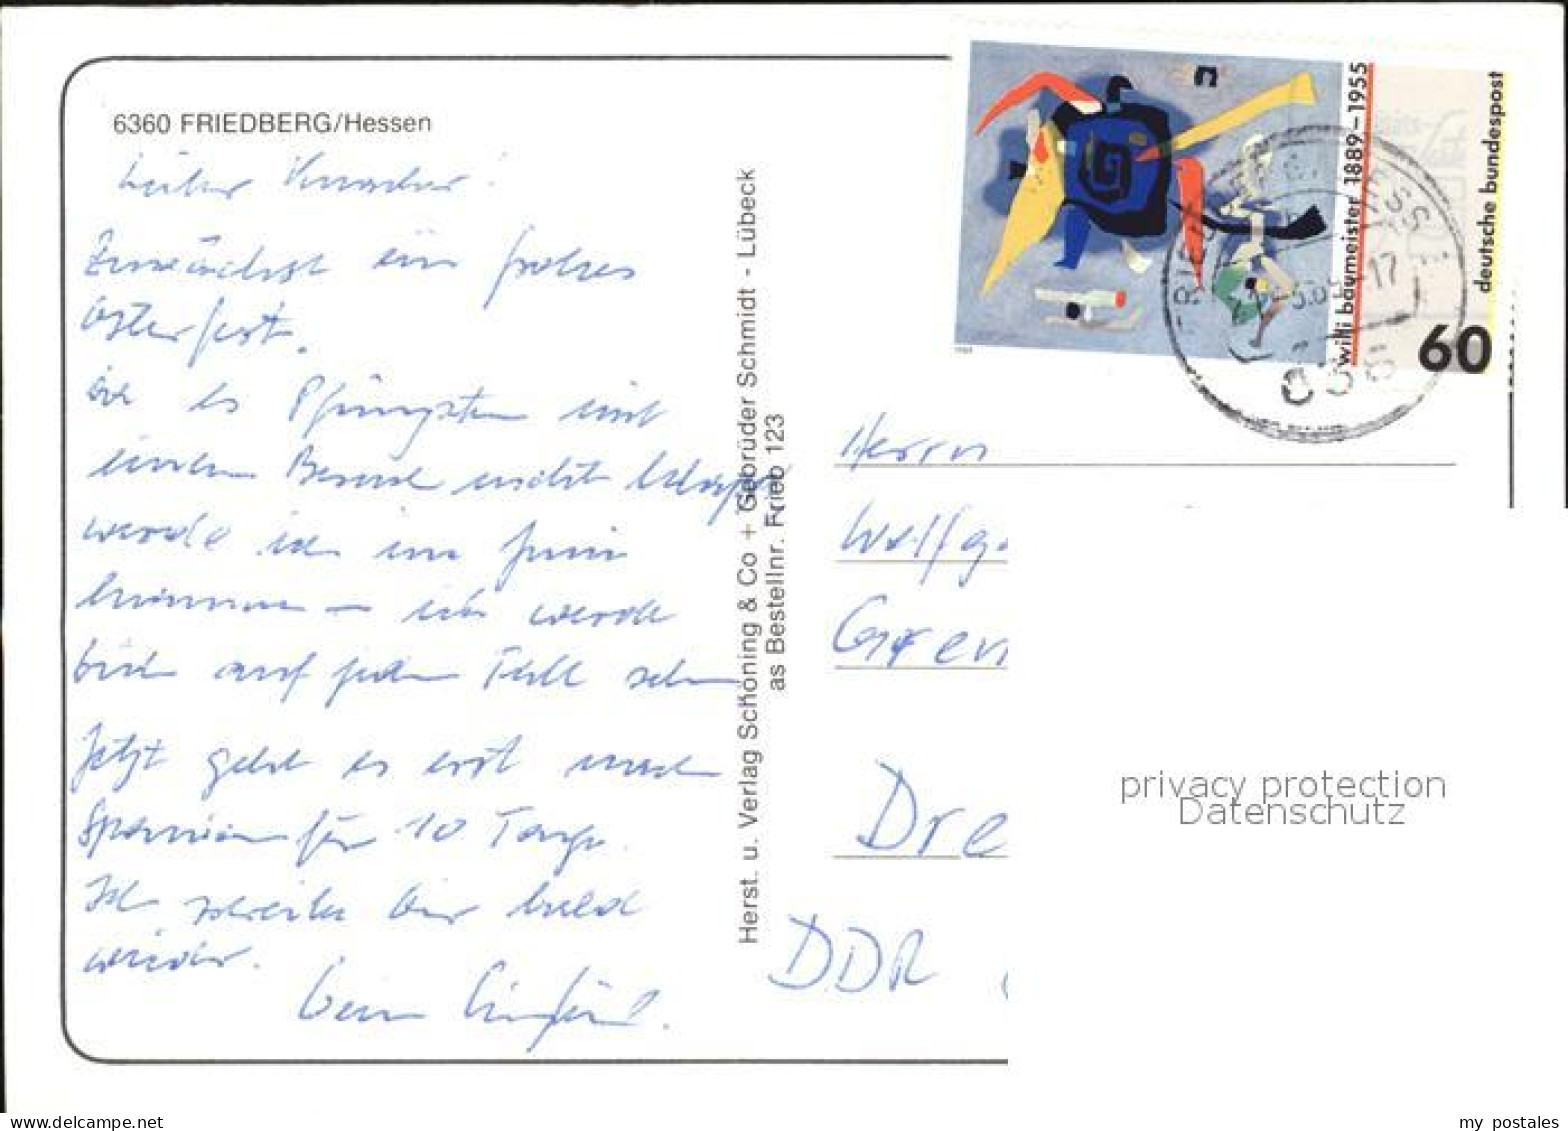 6360 FRIEDBERG/Hessen
Lieber
Zunächst ein frohes
Osterfest.
es Pfingsten mit
einem Besuch nicht klappt
werde ich im Juni
kommen – ich werde
Dich auf jeden Fall sehn
Jetzt geht es erst nach
Spanien für 10 Tage.
Ich schreibe Dir bald
wieder.
Dein
Herst. u. Verlag Schöning & Co + Gebrüder Schmidt - Lübeck
as Bestellnr. Frieb 123
willi baumeister 1889–1955
deutsche bundespost
60
-17
636
Herrn
Wolfga
Dre
DDR
privacy protection
Datenschutz
my postales